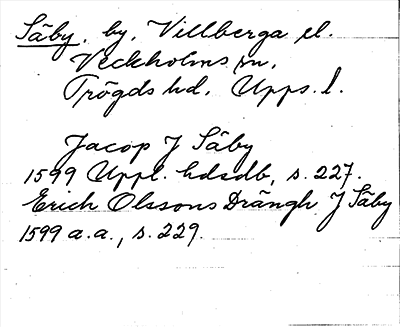 Säby, by, Villberga el.
Veckholms sn,
Trögds hd, Upps. l.
Jacop J Säby
1599 Uppl. hdsdb, s. 227.
Erich Olssons Drängh J Säby
1599 a.a., s. 229.